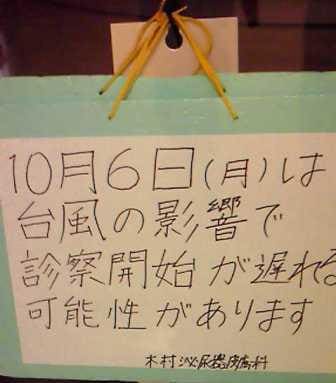 10月6日(月)は
台風の影響で
診察開始が遅れる
可能性があります
木村泌尿器皮膚科